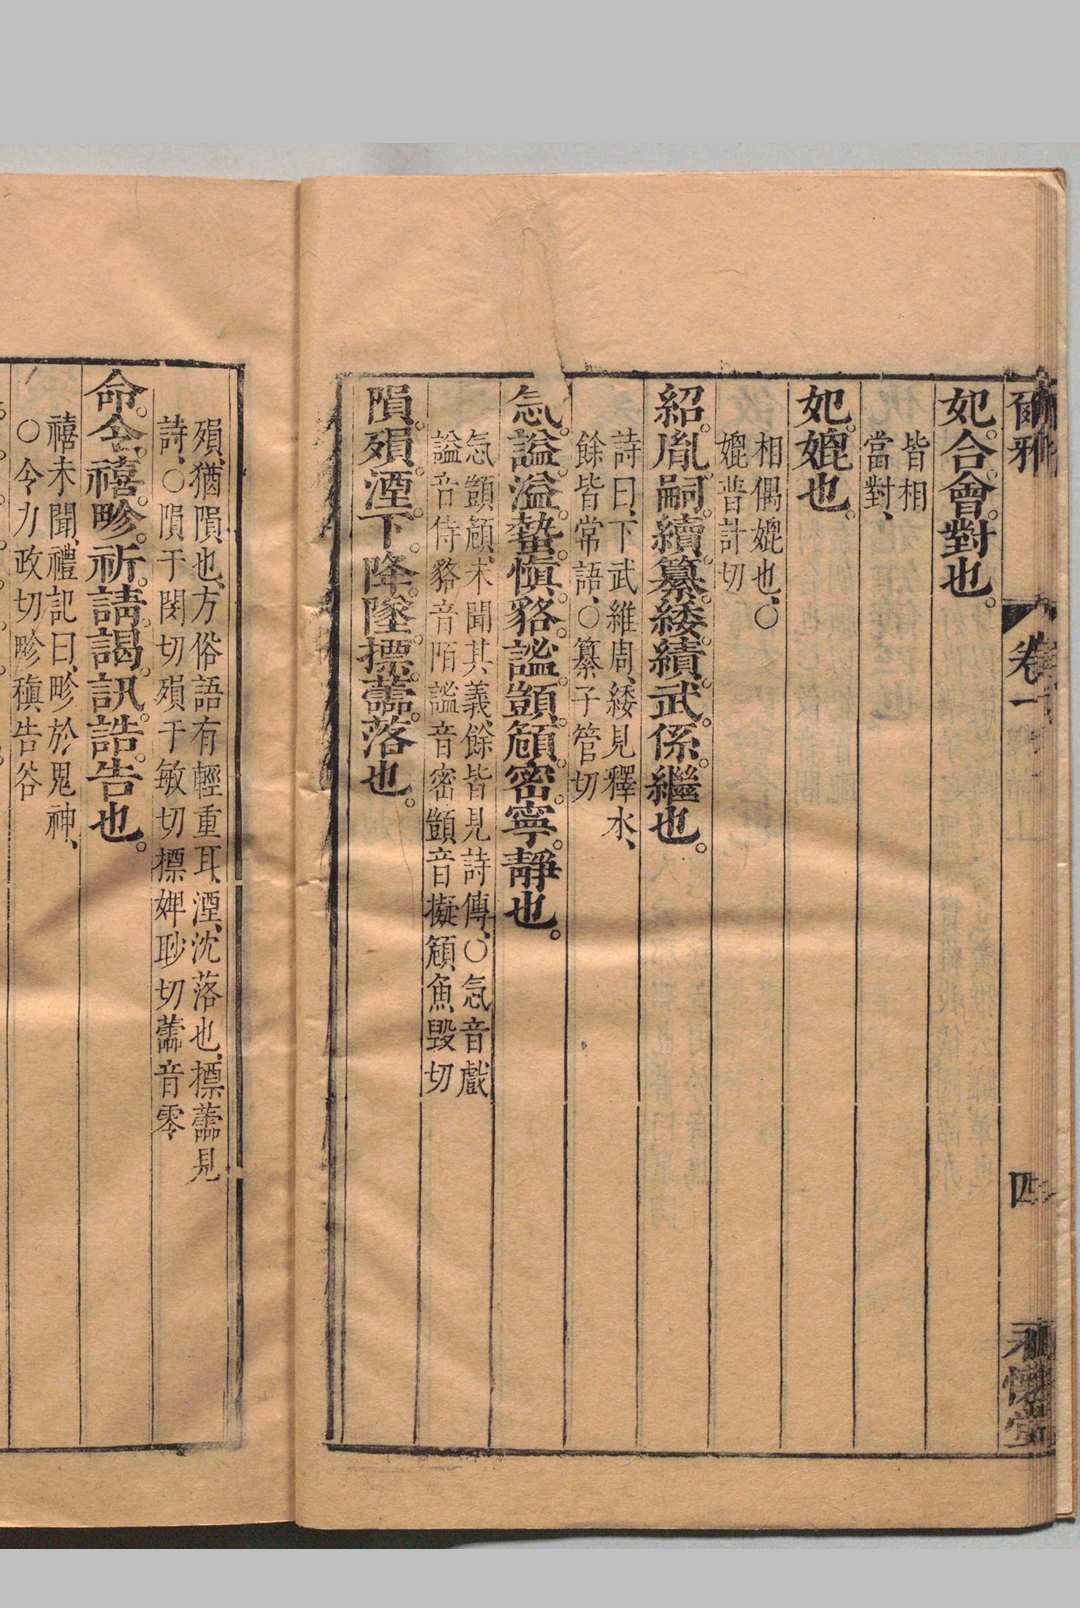 爾雅
卷一
四
永懷堂
妃。合。會。對也。
皆相
當對、
妃。媲也。
相偶媲也、〇
媲普計切
紹。胤。嗣。續。纂。緌。績。武。係。繼也。
詩曰、下武維周、緌見釋水、
餘皆常語、〇纂子管切
忥。謚。溢。蟄。愼。貉。謐。顗。頠。密。寧。靜也。
忥顗頠、未聞其義、餘皆見詩傳、〇忥音戲
謚音侍貉音陌謐音密顗音擬頠魚毀切
隕。殞。湮。下。降。墜。摽。蘦。落也。
殞、猶隕也、方俗語有輕重耳、湮、沈落也、摽蘦見
詩、〇隕于閔切殞于敏切摽婢眇切蘦音零
命。令。禧。畛。祈。請。謁。訊。誥。告也。
禧未聞、禮記曰、畛於鬼神、
〇令力政切畛稹告谷